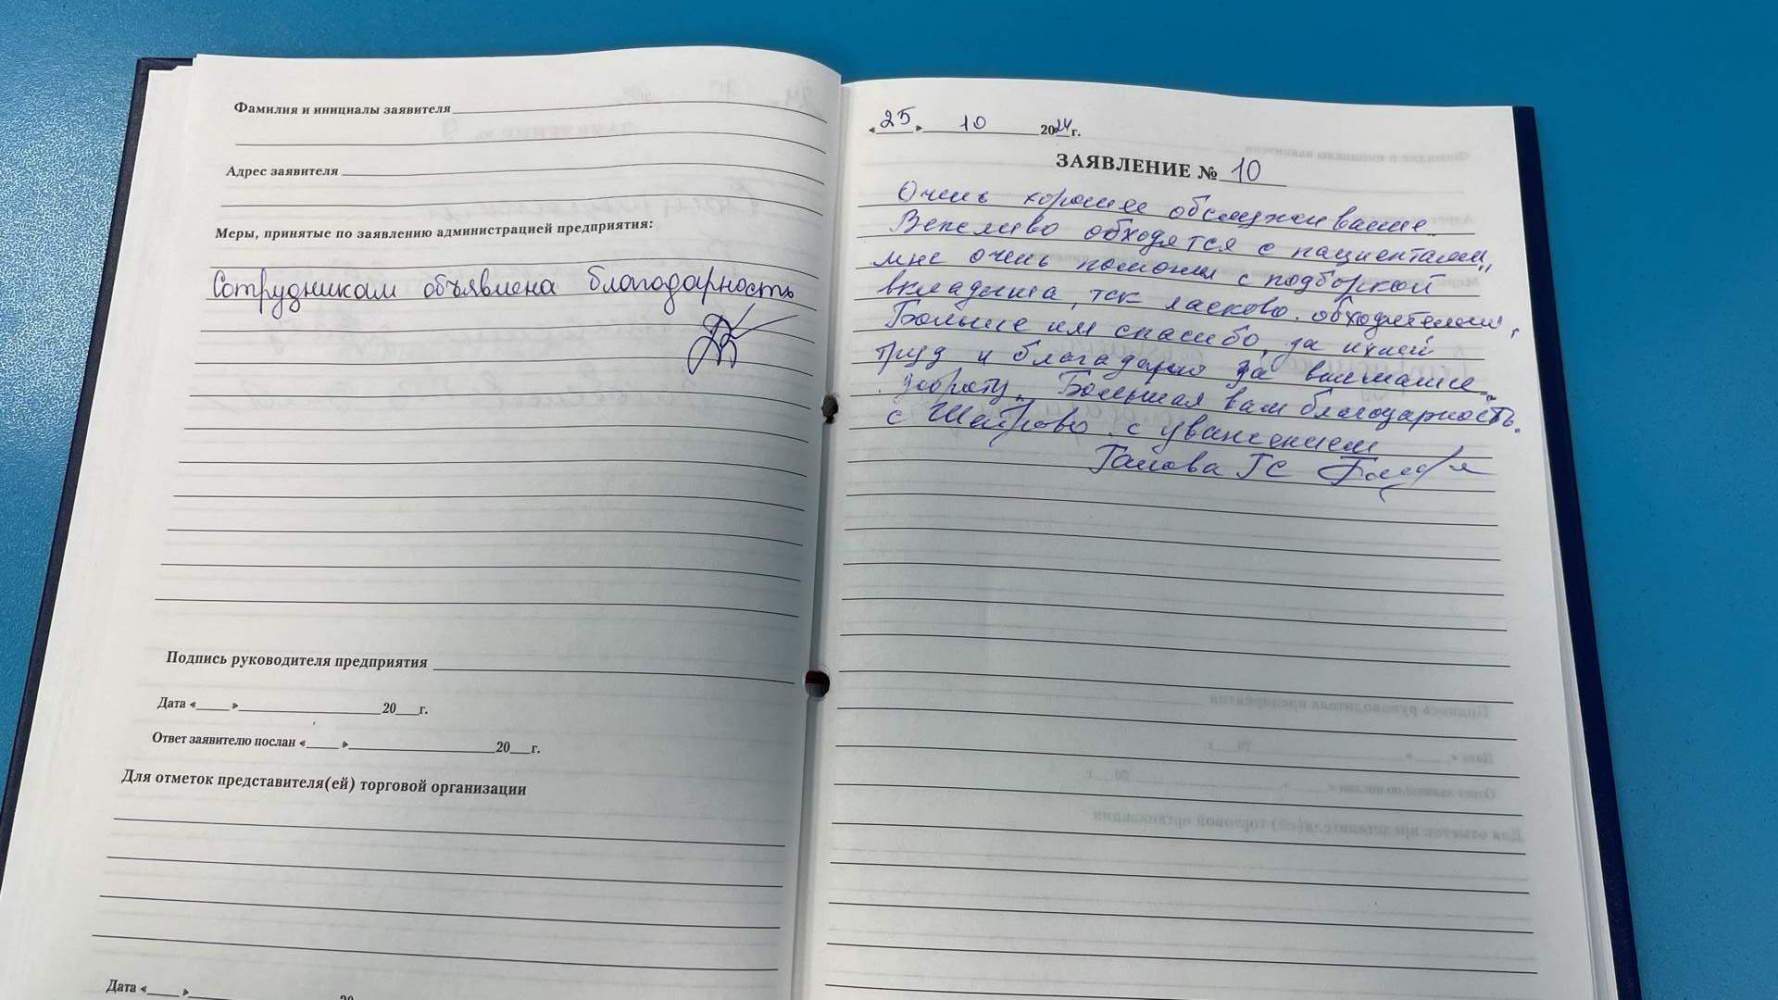 Фамилия и инициалы заявителя
Адрес заявителя
Меры, принятые по заявлению администрацией предприятия:
Сотрудникам объявлена благодарность
Подпись руководителя предприятия
Дата «____»____20__г.
Ответ заявителю послан «____»____20__г.
Для отметок представителя(ей) торговой организации
Дата «____»____20
«25» 10 2024г.
ЗАЯВЛЕНИЕ № 10
Очень хорошее обслуживание
Вежливо обходятся с пациентами,
мне очень помогли с подборкой
вкладыша, так ласково обходительны,
Большие им спасибо за ихний
труд и благадарю за внимание
доброту. Большая вам благодарность.
с уважением
Галова ГС